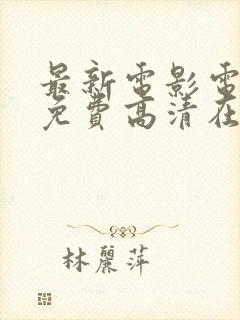 最新電影電
免費高清在
林麗萍